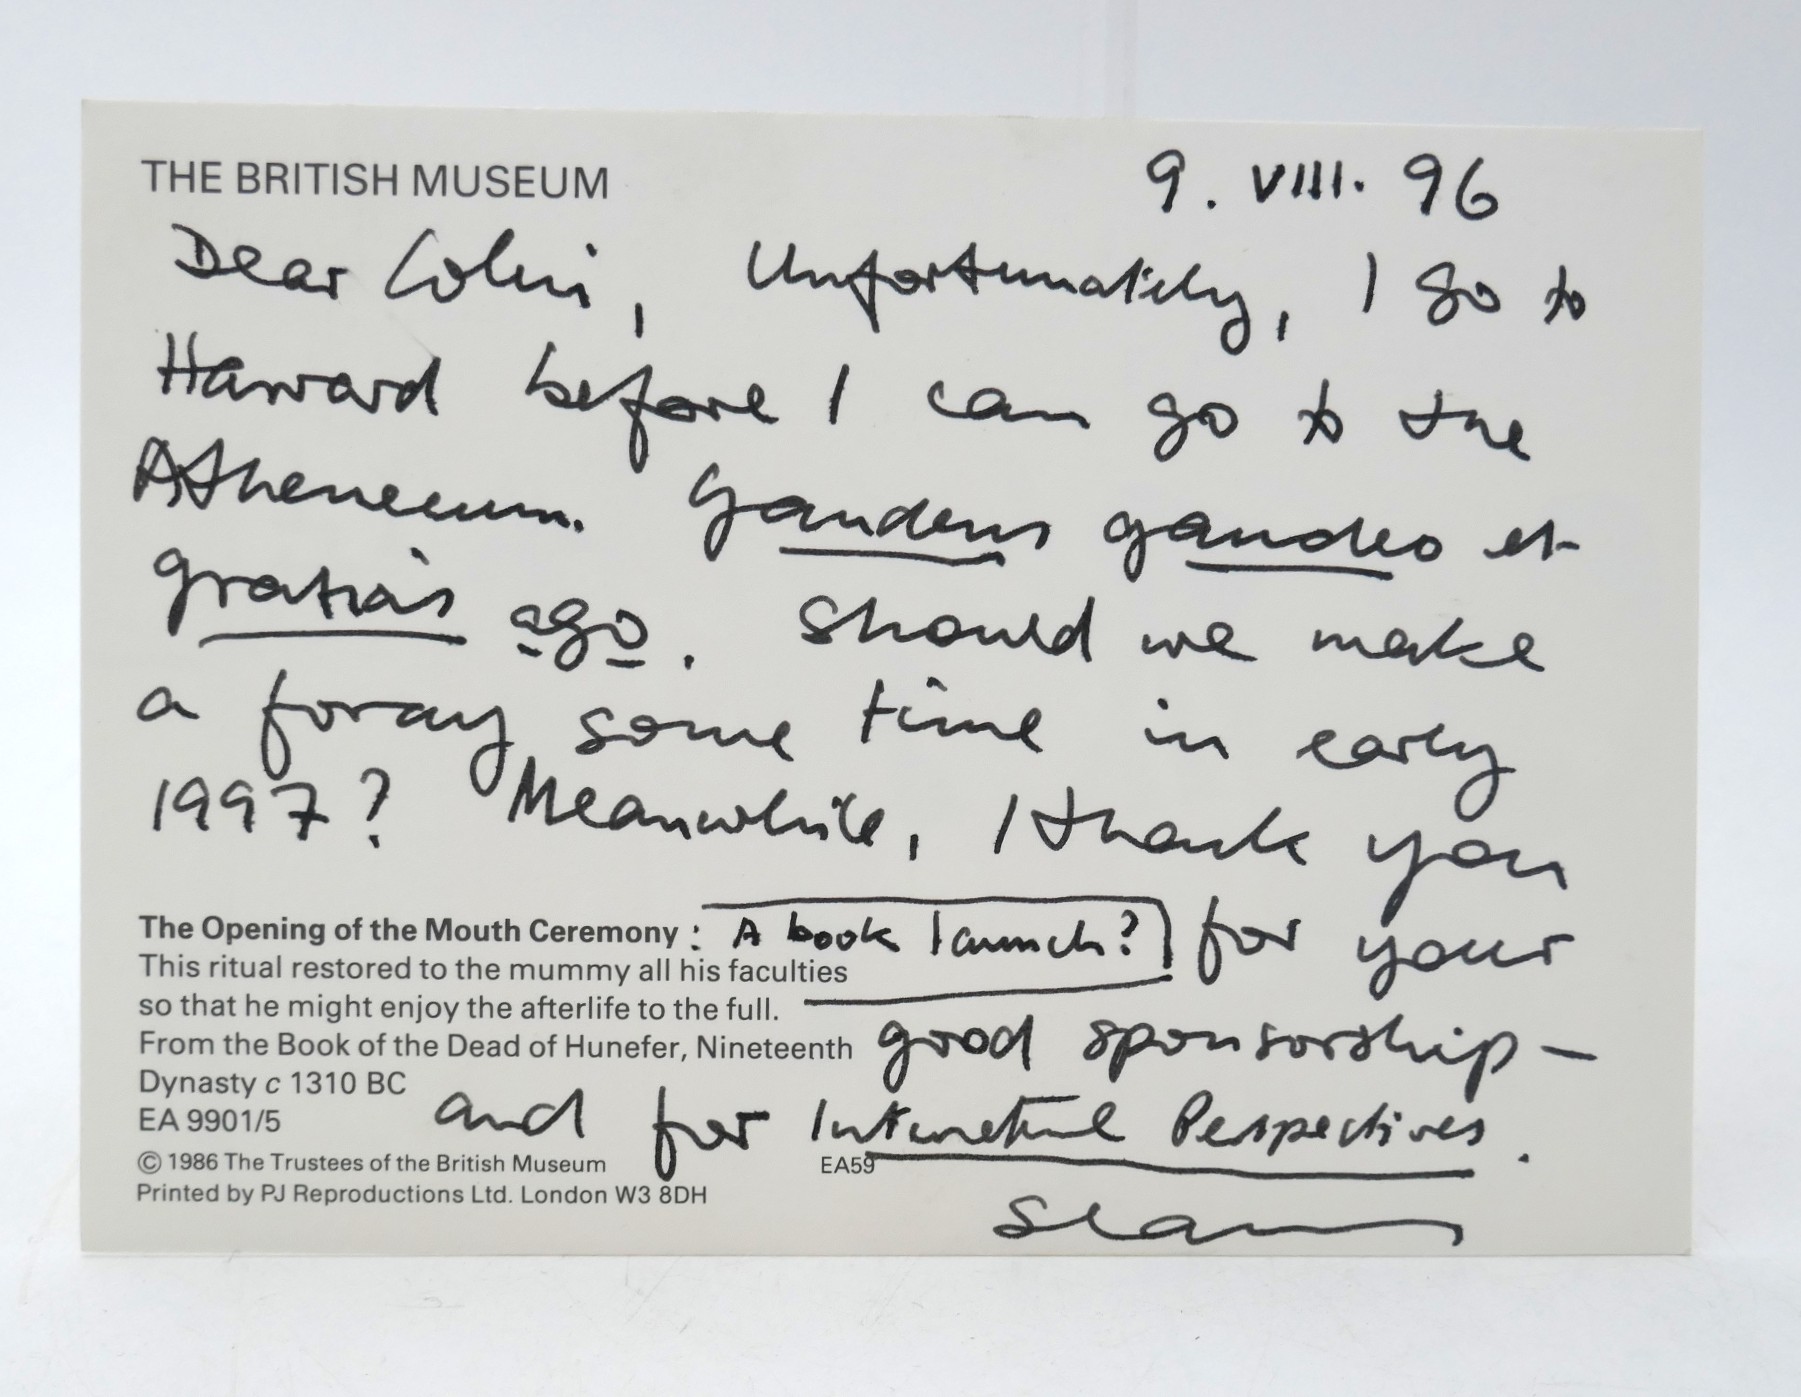 THE BRITISH MUSEUM
9. VIII. 96
Dear Colin, Unfortunately, I go to
Harvard before I can go to the
Atheneum. Gaudens gaudeo et
gratias ago. Should we make
a foray some time in early
1997? Meanwhile, I thank you
The Opening of the Mouth Ceremony : A book launch? for your
This ritual restored to the mummy all his faculties
so that he might enjoy the afterlife to the full.
From the Book of the Dead of Hunefer, Nineteenth good sponsorship –
Dynasty c 1310 BC
EA 9901/5 and for Perspectives.
© 1986 The Trustees of the British Museum EA59
Printed by PJ Reproductions Ltd. London W3 8DH